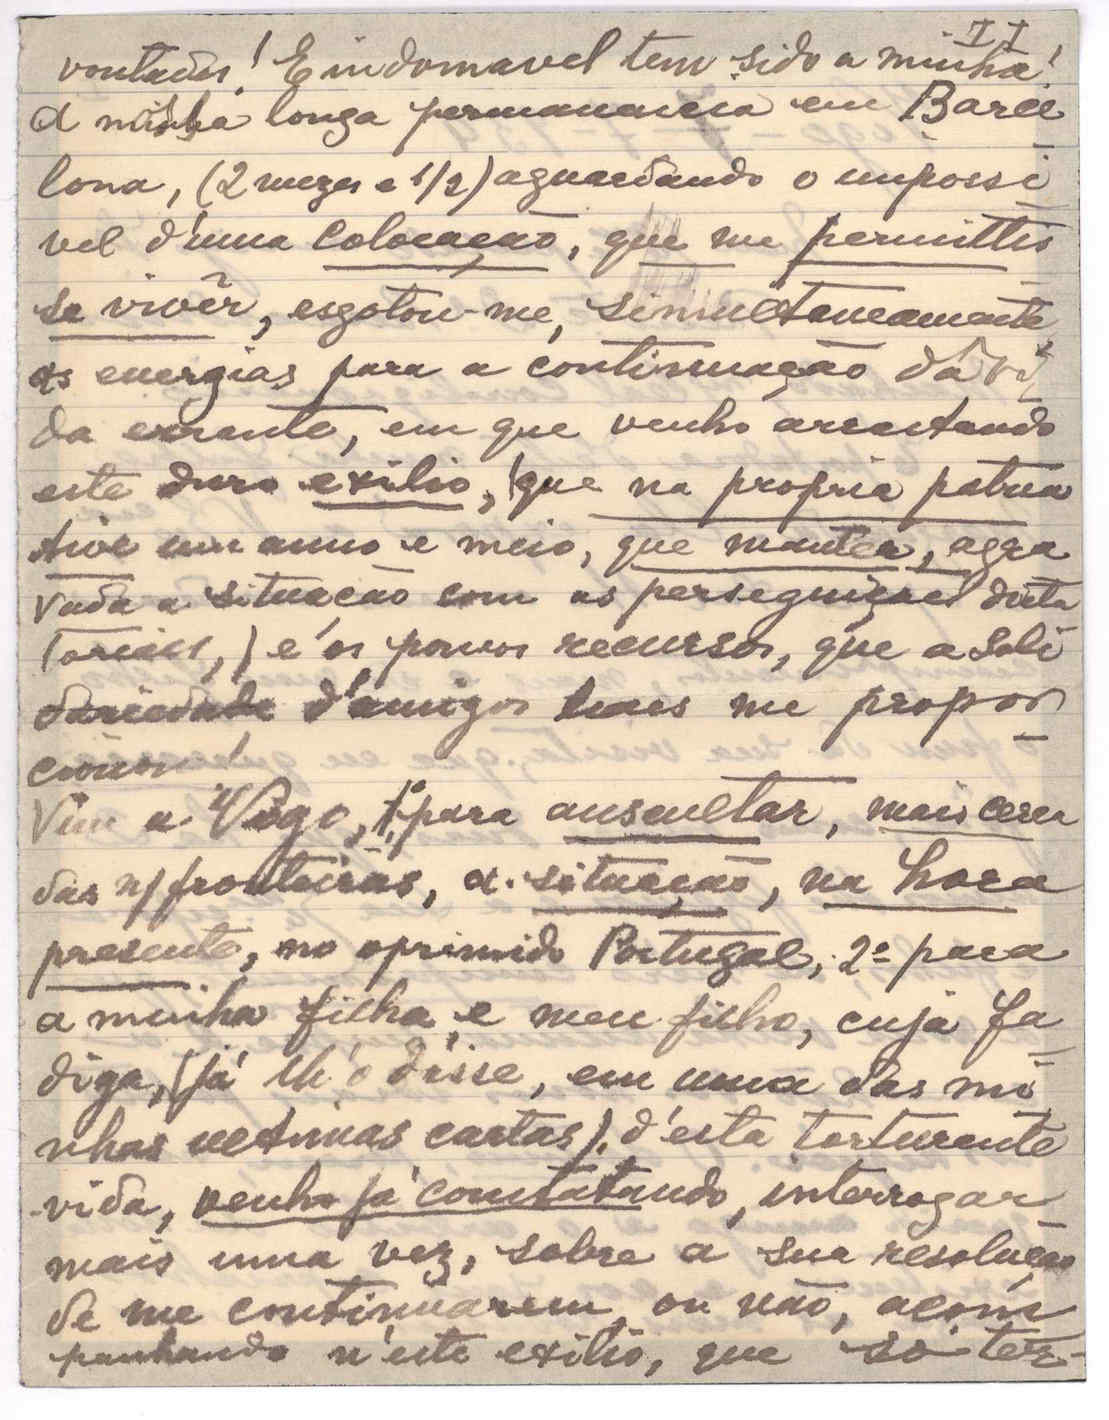 II
vontades! E indomavel tem sido a minha!
A minha longa permanencia em Barce
lona, (2 mezes e 1/2) aguardando o impossi
vel d'uma colocação, que me permittis
se vivêr, esgotou-me, simultaneamente
as energias para a continuação da vi
da errante, em que venho arrastando
este duro exilio, (que na propria patria
tive um anno e meio, que manter, agra
vada a situação com as perseguições dicta
toriaes,) e os poucos recursos, que a soli
dariedade d'amigos leaes me propor
cionou!
Vim a Vigo, 1º para auscultar, mais cerca
das n/ fronteiras, a situação, na hora
presente, no oprimido Portugal, 2º para
a minha filha e meu filho, cuja fa
diga, (já lh'o disse, em uma das mi
nhas ultimas cartas), d'esta torturante
vida, venho já constatando, interrogar
mais uma vez, sobre a sua resolução
de me continuarem, ou não, acom
panhando n'este exilio, que só ter-